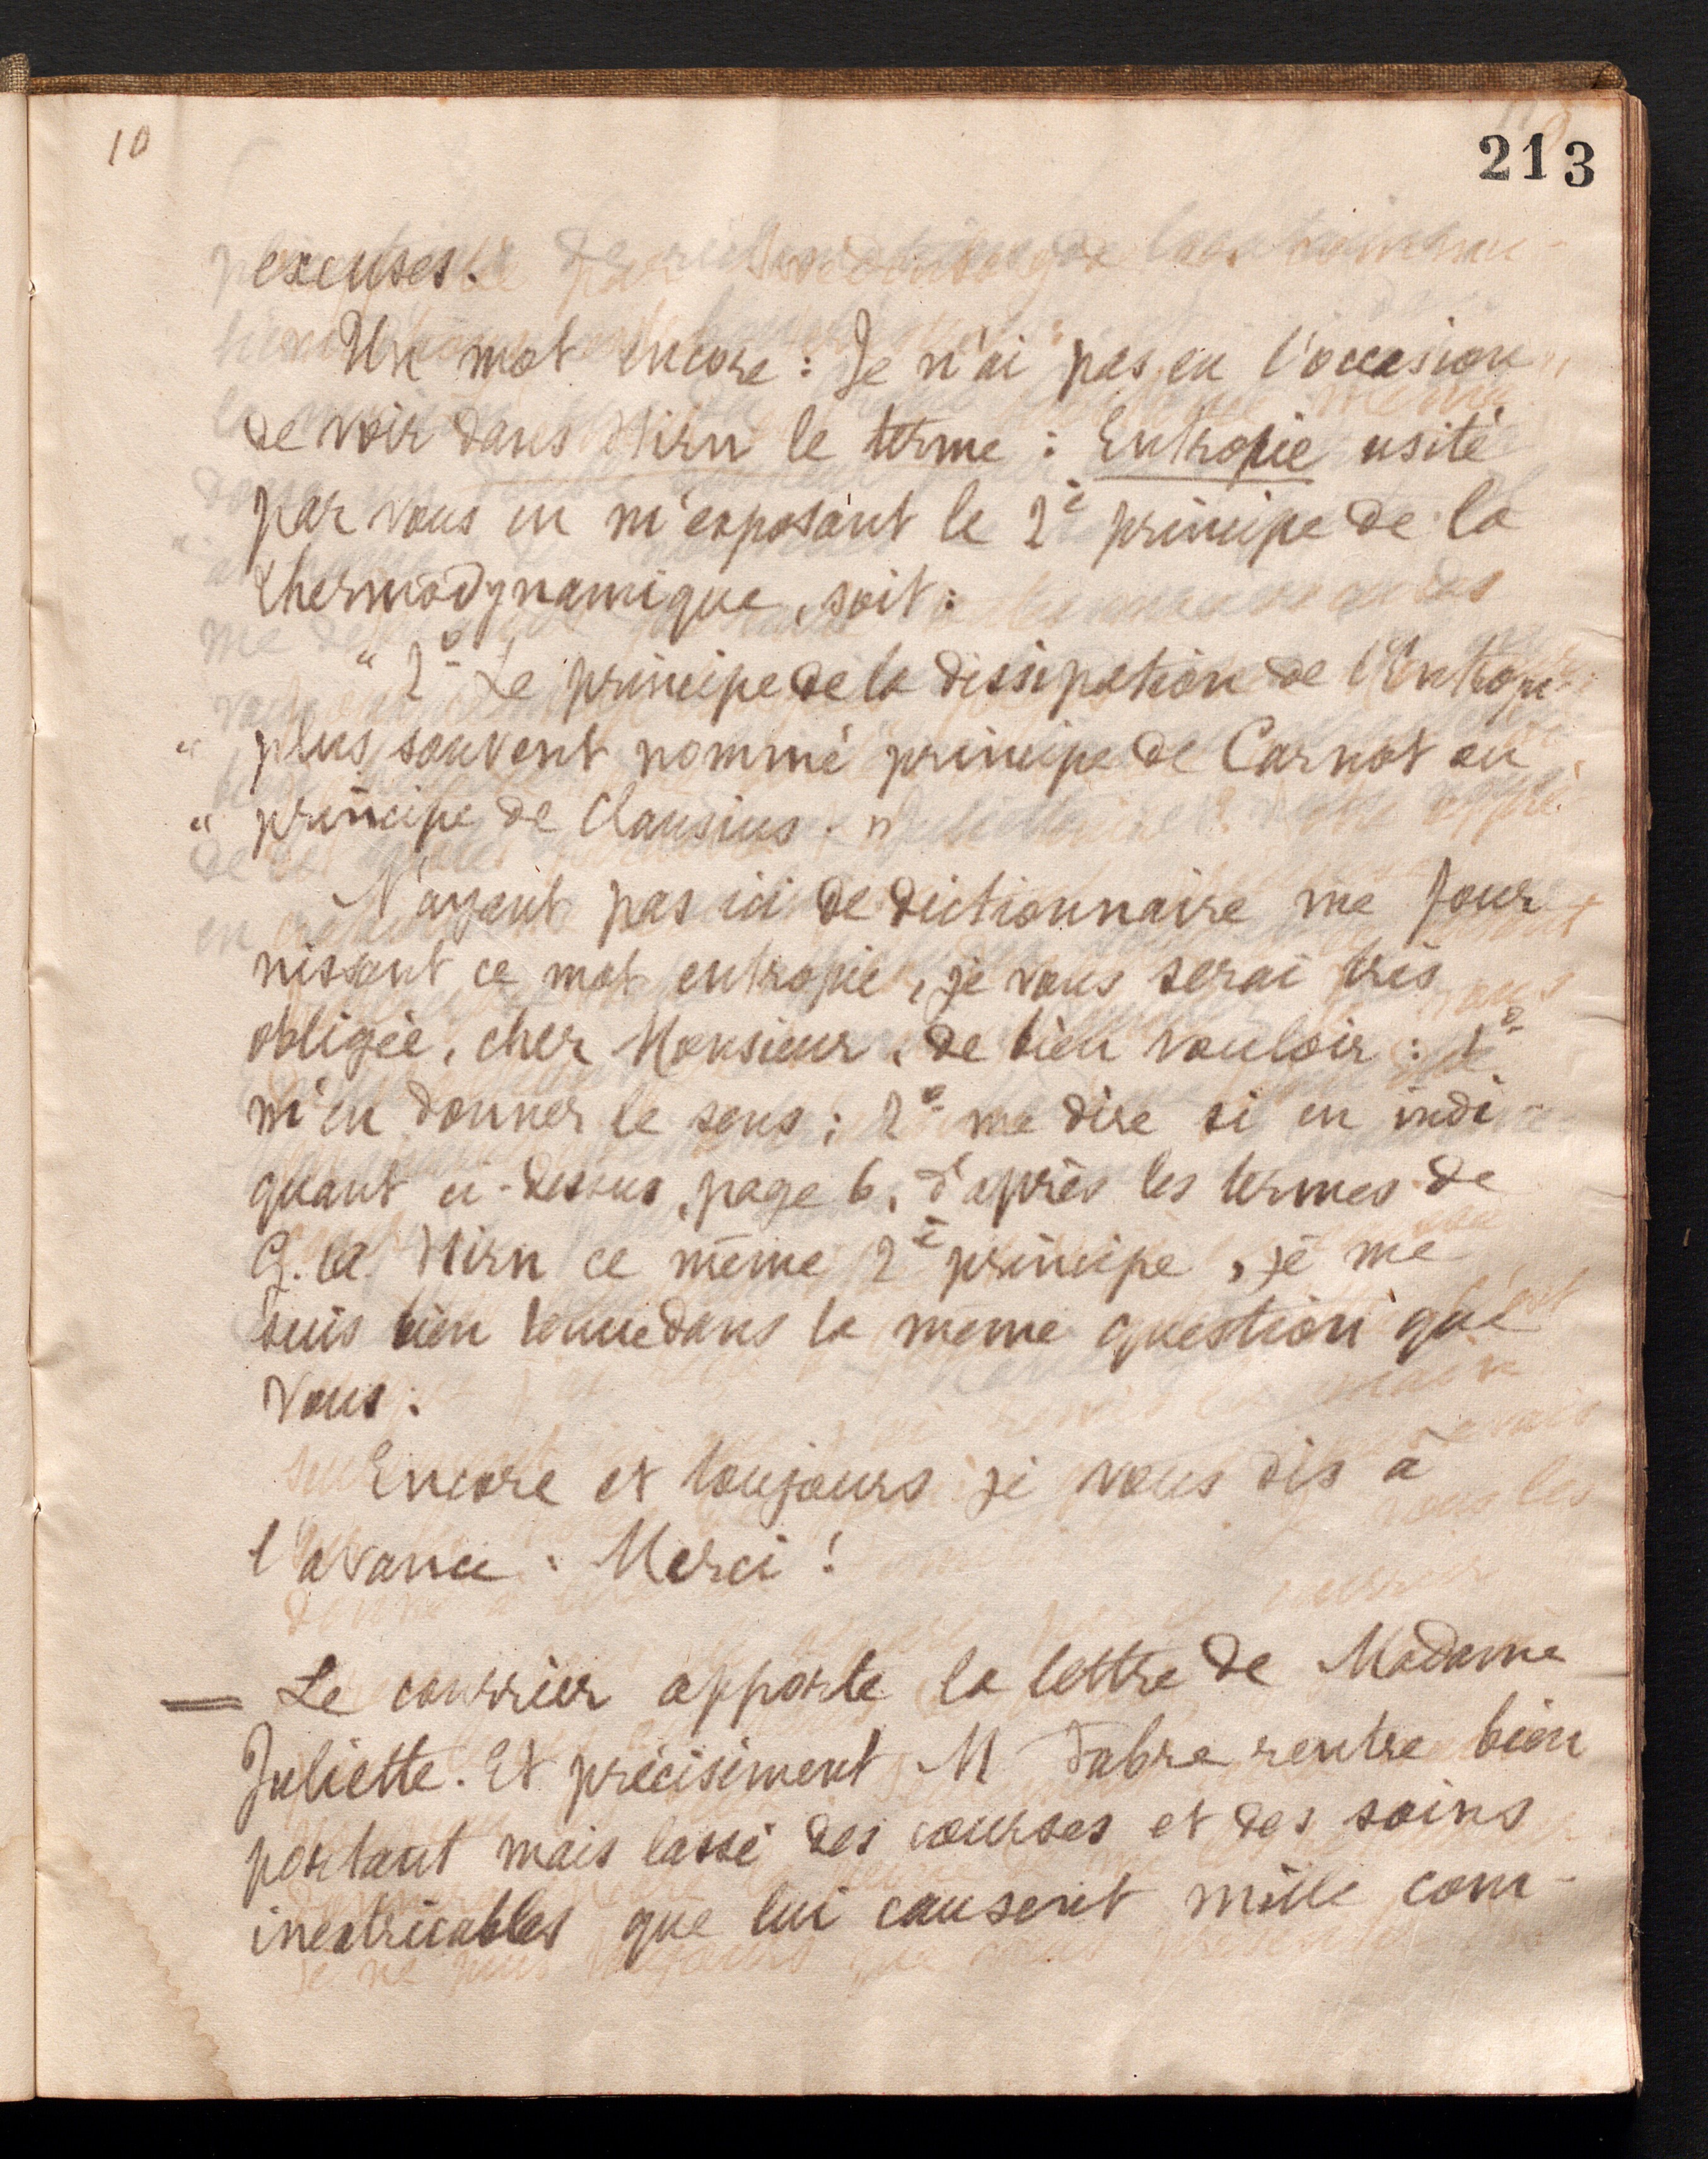 10
213
excuses.
Un mot encore : Je n'ai pas eu l'occasion
de voir dans Hirn le terme : Entropie usité
par vous en m'exposant le 2e principe de la
thermodynamique, soit :
" 2o Le principe de la dissipation de l'Entropie
" plus souvent nommé principe de Carnot ou
" principe de Clausius. "
N'ayant pas ici de dictionnaire me four-
nissant ce mot entropie, je vous serai très
obligée, cher Monsieur, de bien vouloir : 1o
m'en donner le sens ; 2o me dire si en indi-
quant ci-dessus, page 6, d'après les termes de
G. A. Hirn ce même 2e principe, je me
suis bien tenue dans la même question que
vous.
Encore et toujours je vous dis à
l'avance : Merci !
= Le courrier apporte la lettre de Madame
Juliette. Et précisément M Fabre rentre bien
portant mais lassé des courses et des soins
inextricables que lui causent mille com-